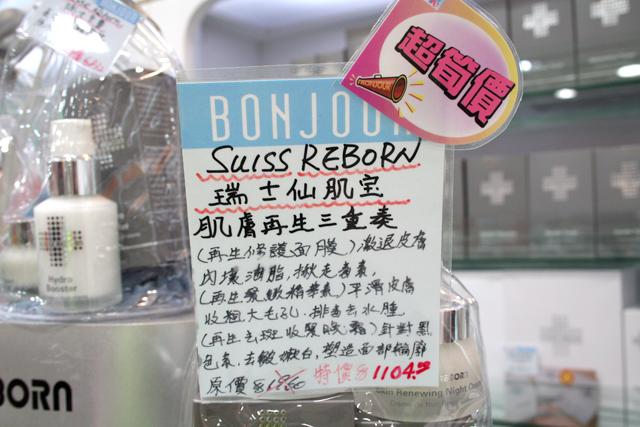 超筍價
BONJOUR
BONJOUR
SUISS REBORN
瑞士仙肌宝
肌膚再生三重奏
(再生修護面膜)激退皮膚
內壞油脂,揪走毒素,
(再生緊緻精華素)平滑皮膚
收粗大毛孔.排毒去水腫
(再生去斑收緊晚霜)針對黑
色素,去皺嫩白,塑造面部輪廓
原價$ 特價$1104.50
Hydro
Booster
BORN
REBORN
Skin Renewing Night Cream